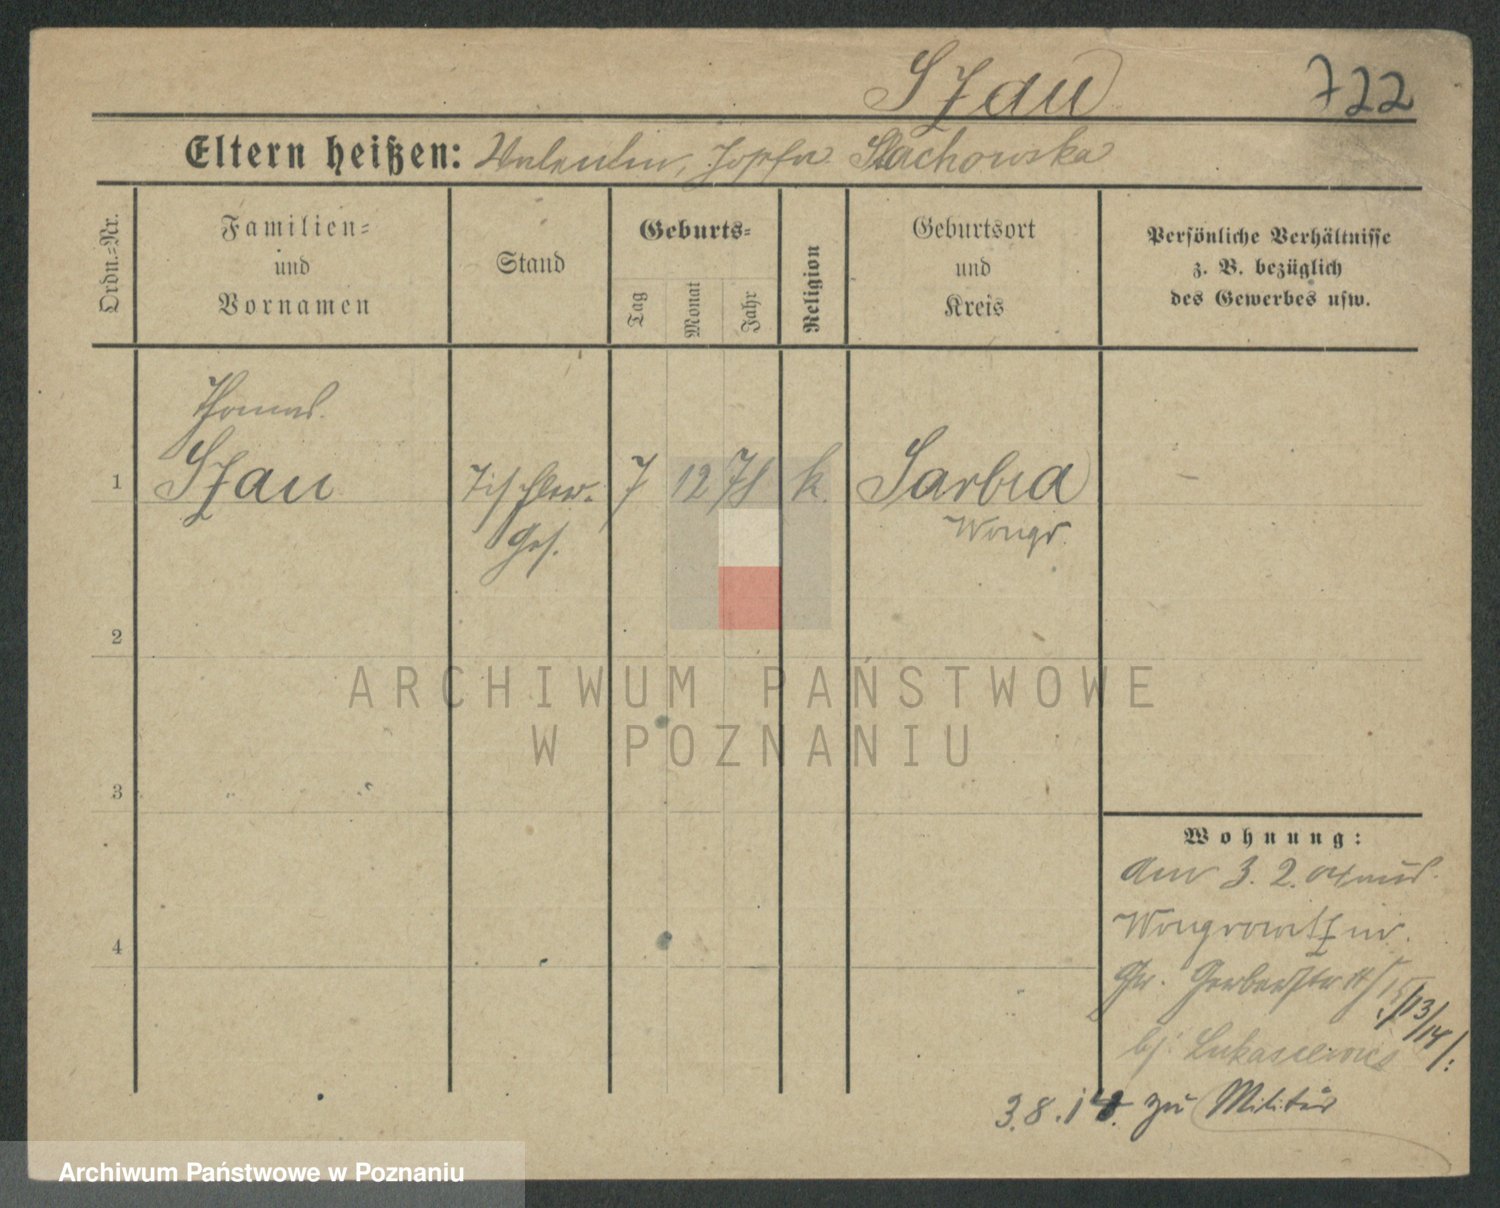 Szau 722
Eltern heißen: Valentin, Josefa Stachowska
Ordn.-Nr.
Familien-
und
Vornamen
Stand
Geburts-
Tag
Monat
Jahr
Religion
Geburtsort
und
Kreis
Persönliche Verhältnisse
z. B. bezüglich
des Gewerbes usw.
Thomas
1 Szau Tischler- 7 12 78 k. Sarbia
Ges. Wongr.
2
ARCHIWUM PAŃSTWOWE
W POZNANIU
3
4
Wohnung:
am 3. 2.
Wongrowitz
Gr. Gerberstr
13/14/:
bj. Lukasiewicz
3.8.14. zu Militär
Archiwum Państwowe w Poznaniu